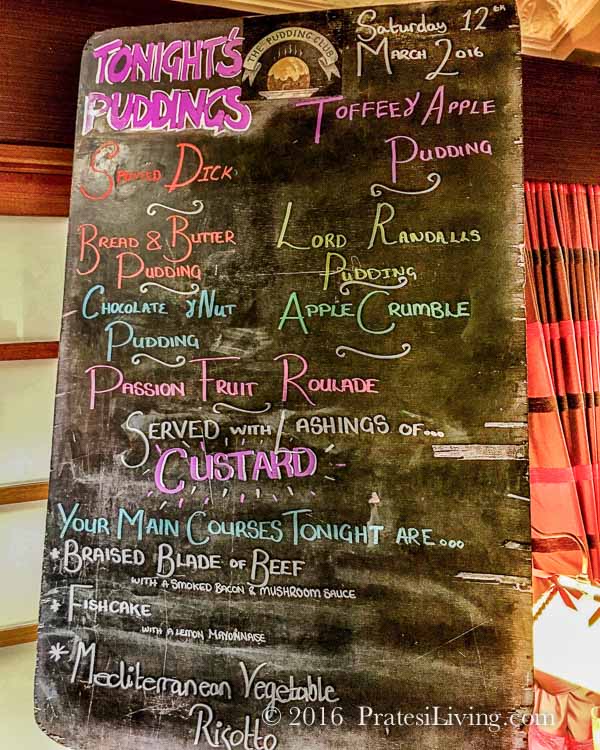 TONIGHT'S
PUDDINGS
THE PUDDING CLUB
SATURDAY 12th
MARCH 2016
TOFFEE & APPLE
PUDDING
SPOTTED DICK
BREAD & BUTTER
PUDDING
LORD RANDALLS
PUDDING
CHOCOLATE & NUT
PUDDING
APPLE CRUMBLE
PASSION FRUIT ROULADE
SERVED WITH LASHINGS OF...
CUSTARD
YOUR MAIN COURSES TONIGHT ARE...
* BRAISED BLADE OF BEEF
WITH A SMOKED BACON & MUSHROOM SAUCE
* FISHCAKE
WITH A LEMON MAYONNAISE
* Mediterranean Vegetable
Risotto
© 2016 PratesiLiving.com